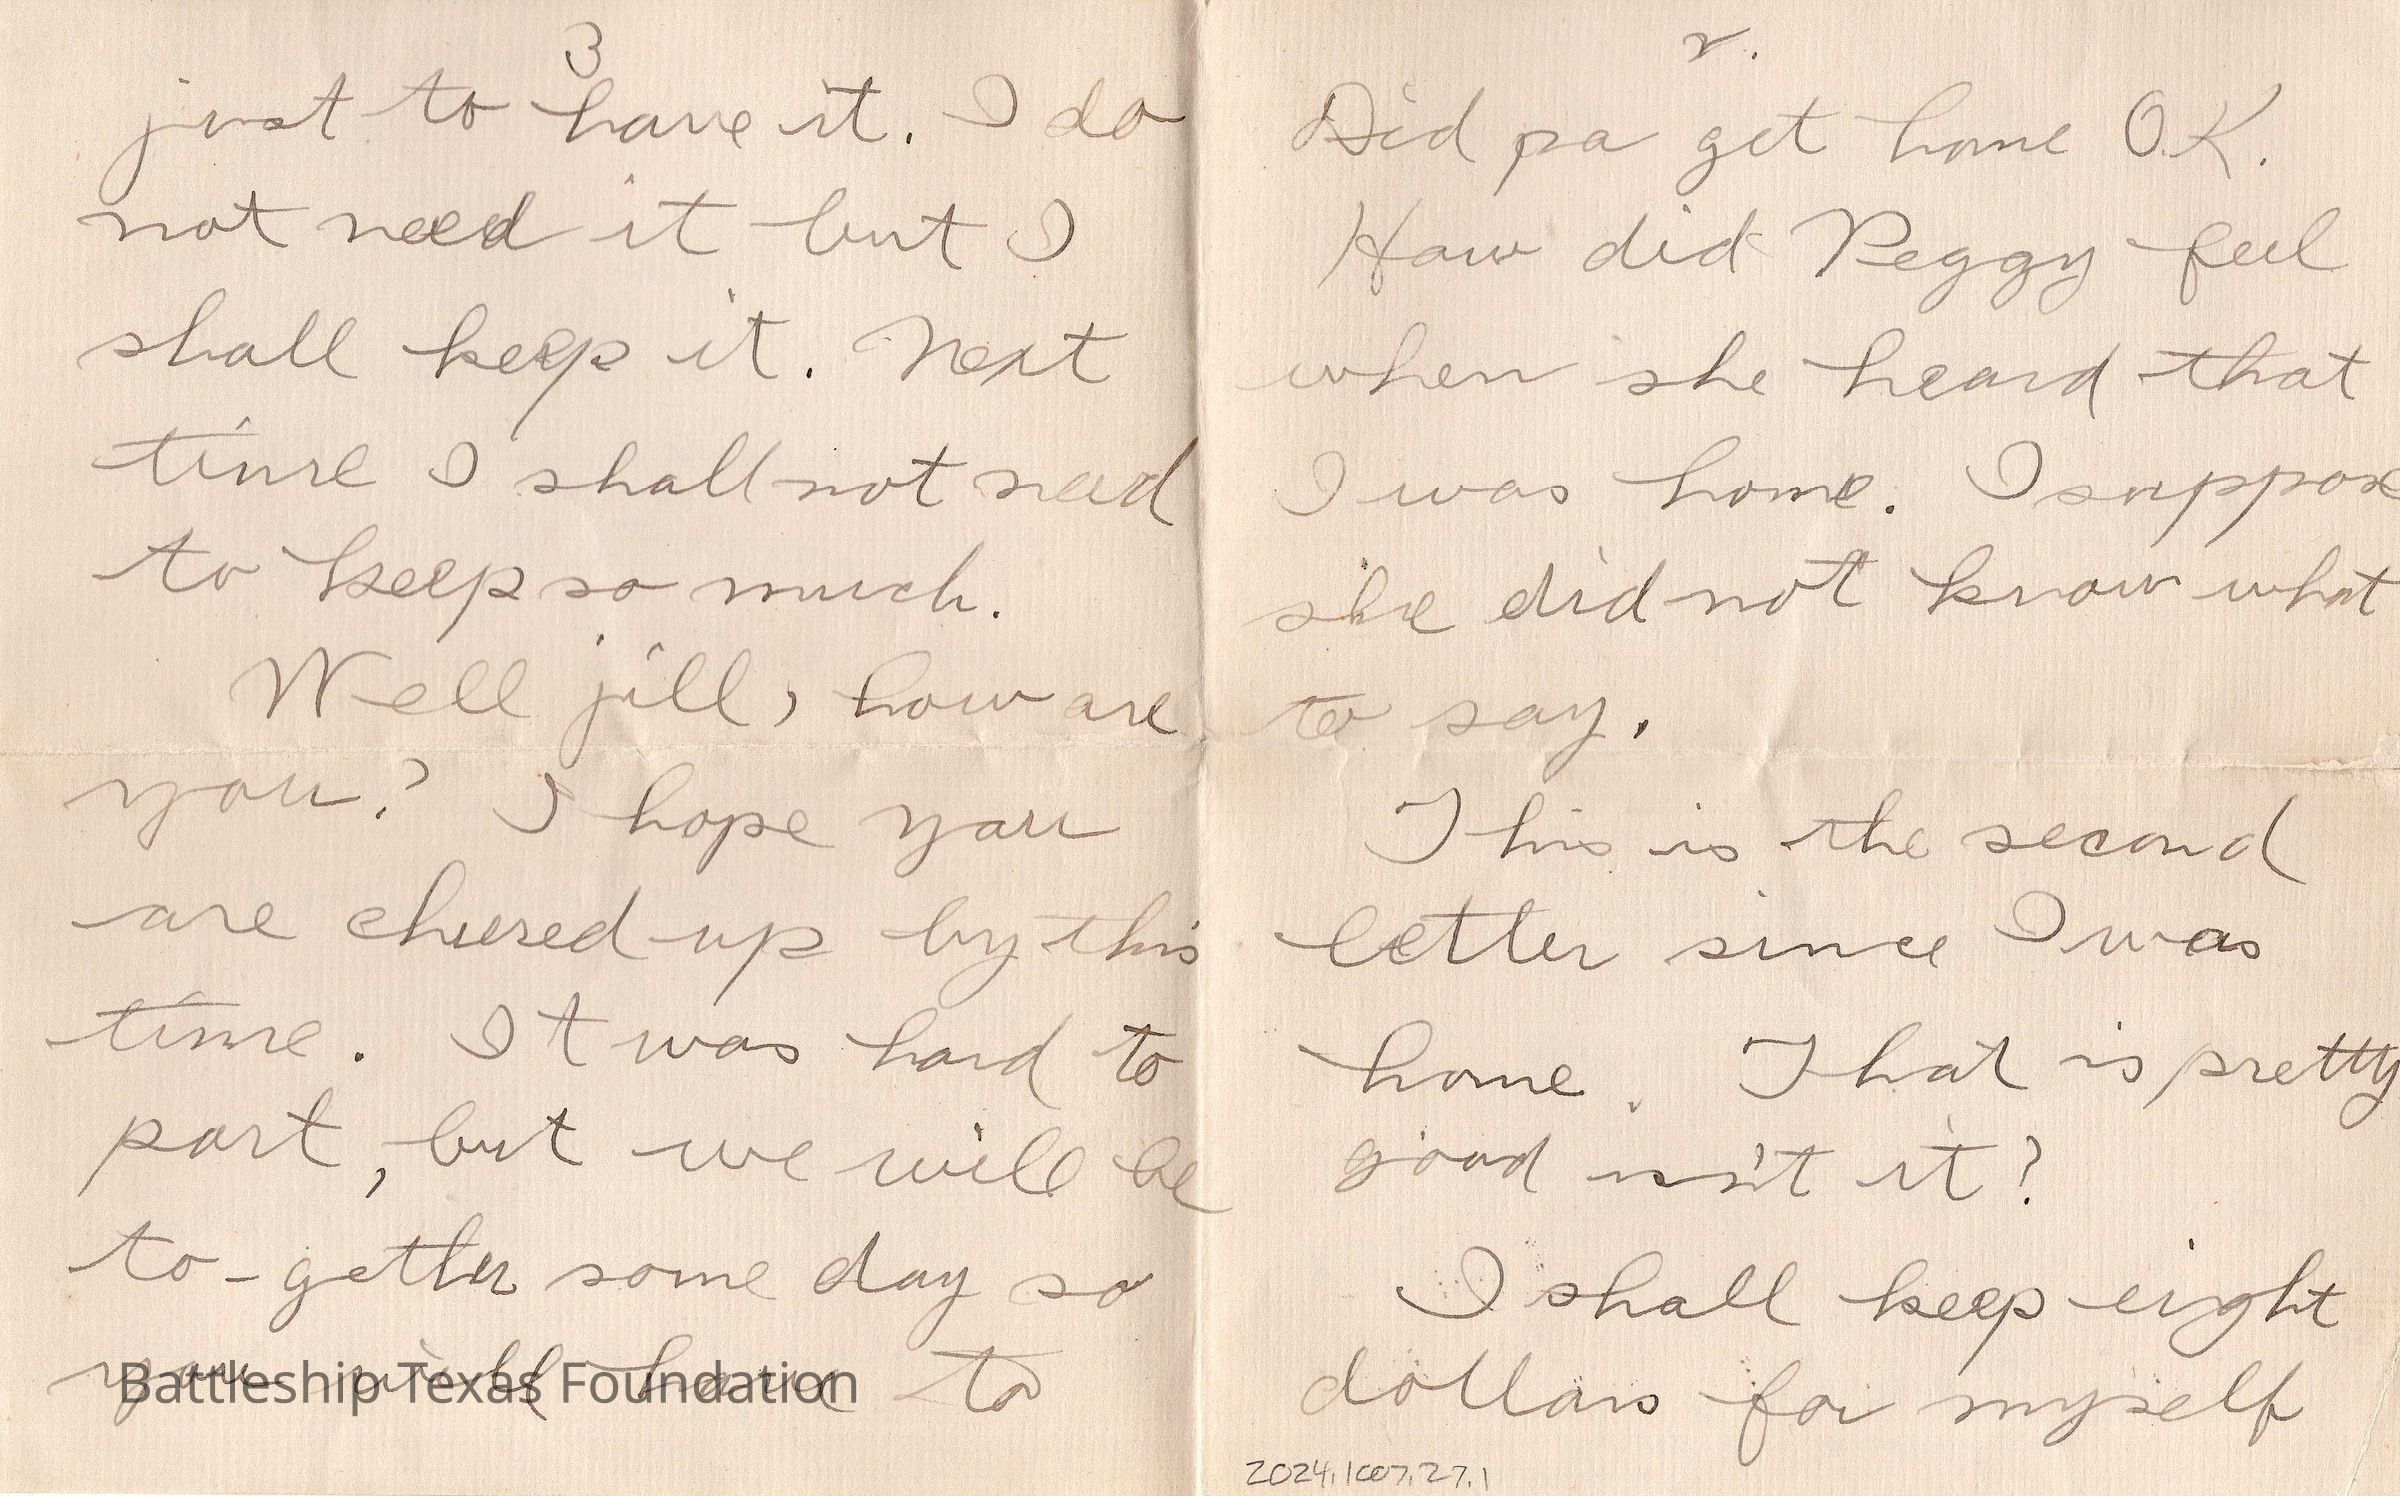 2.
Did pa get home O.K.
How did Peggy feel
when she heard that
I was home. I suppose
she did not know what
to say.
This is the second
letter since I was
home. That is pretty
good isn't it?
I shall keep eight
dollars for myself
2024.1007.27.1
3
just to have it. I do
not need it but I
shall keep it. Next
time I shall not need
to keep so much.
Well jill, how are
you? I hope you
are cheered up by this
time. It was hard to
part, but we will be
to-gether some day so
you will have to
Battleship Texas Foundation